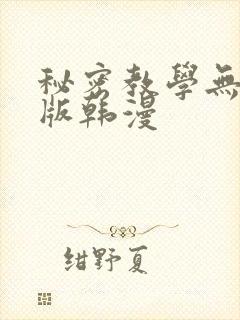 秘密教學無
版韩漫
绀野夏